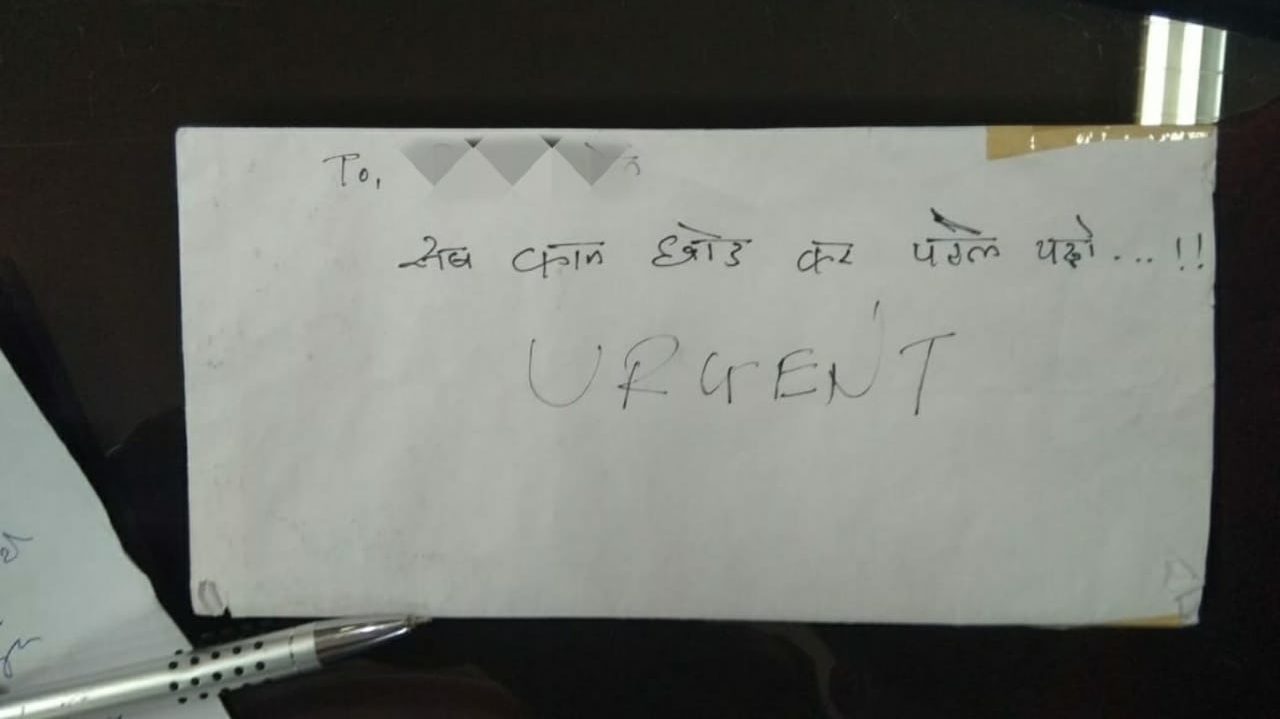 To,
सब काम छोड कर पेहले पढ़ो...!!
URGENT